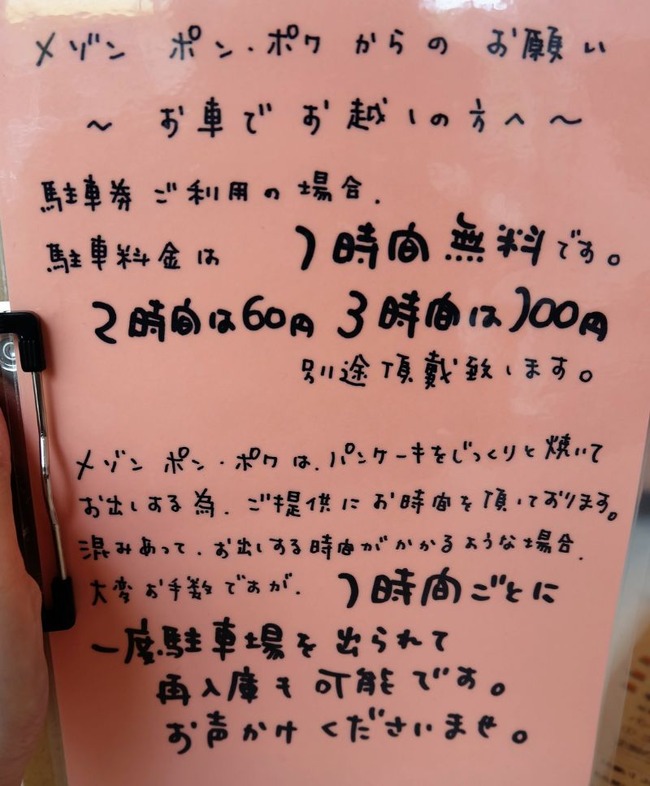 メゾン ポン・ポワ からの お願い
～ お車で お越しの方へ～
駐車券 ご利用の場合、
駐車料金は 1時間無料です。
2時間は60円 3時間は100円
別途頂戴致します。
メゾン ポン・ポワは、パンケーキをじっくりと焼いて
お出しする為、ご提供にお時間を頂いております。
混みあって、お出しする時間がかかるような場合、
大変お手数ですが、1時間ごとに
一度駐車場を出られて
再入庫も可能です。
お声かけくださいませ。